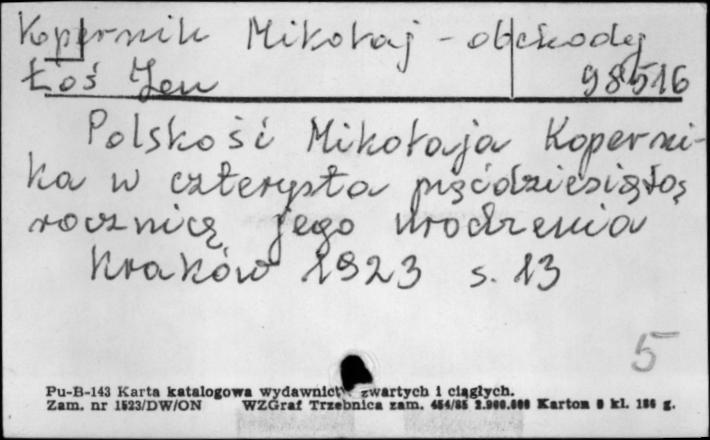 Kopernik Mikołaj - obchody
Łoś Jan 98516
Polskość Mikołaja Koperni-
ka w czterysta pięćdziesiątą
rocznicę jego urodzenia
Kraków 1923 s. 13
5
Pu-B-143 Karta katalogowa wydawnictw zwartych i ciągłych.
Zam. nr 1523/DW/ON WZGraf Trzebnica zam. 454/85 2.000.000 Karton 0 kl. 180 g.